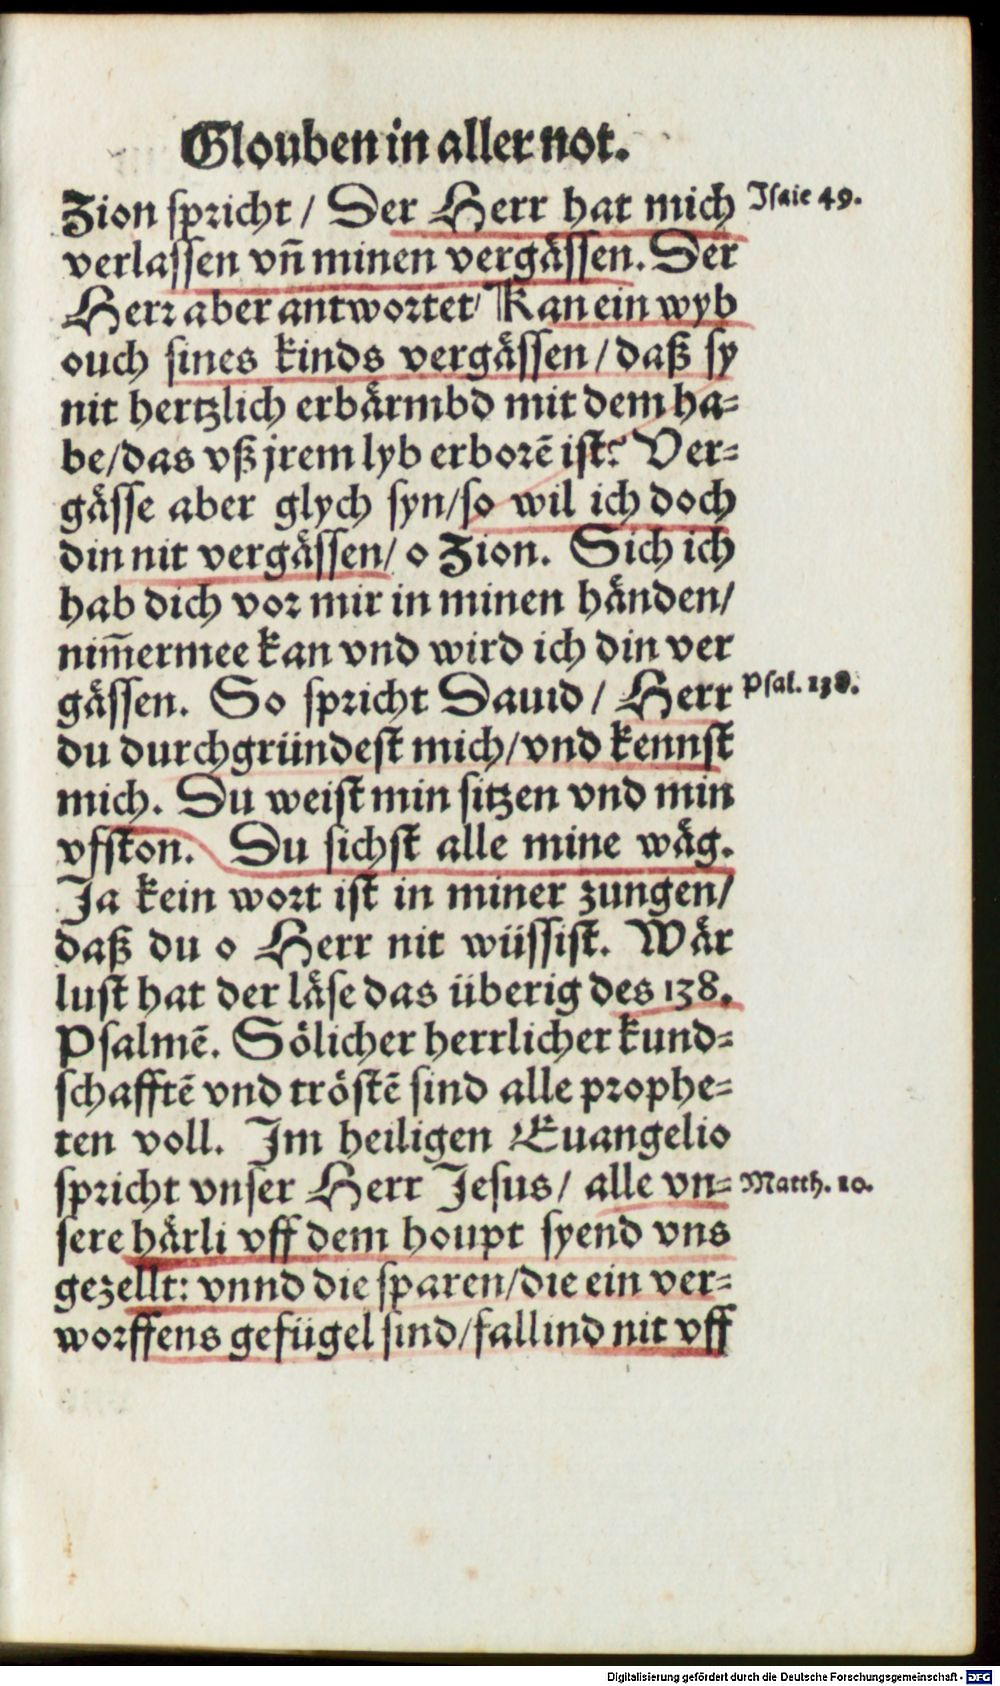 Glouben in aller not.
Zion spricht / Der Herr hat mich Isaie 49.
verlassen vñ minen vergässen. Der
Herr aber antwortet / Kan ein wyb
ouch sines kinds vergässen / daß sy
nit hertzlich erbärmbd mit dem ha=
be / das vß jrem lyb erborẽ ist? Ver=
gåsse aber glych syn / so wil ich doch
din nit vergåssen / o Zion. Sich ich
hab dich vor mir in minen hånden /
nim̃ermee kan vnd wird ich din ver
gåssen. So spricht Dauid / Herr Psal. 138.
du durchgründest mich / vnd kennst
mich. Du weist min sitzen vnd min
vfston. Du sichst alle mine wåg.
Ja kein wort ist in miner zungen /
daß du o Herr nit wüssist. Wår
lust hat der låse das überig des 138.
Psalmẽ. Sölicher herrlicher kund=
schafftẽ vnd tröstẽ sind alle prophe=
ten voll. Im heiligen Euangelio
spricht vnser Herr Jesus / alle vn= Matth. 10.
sere hårli vff dem houpt syend vns
gezellt: vnnd die sparen / die ein ver=
worffens gefügel sind / fallind nit vff
Digitalisierung gefördert durch die Deutsche Forschungsgemeinschaft - DFG